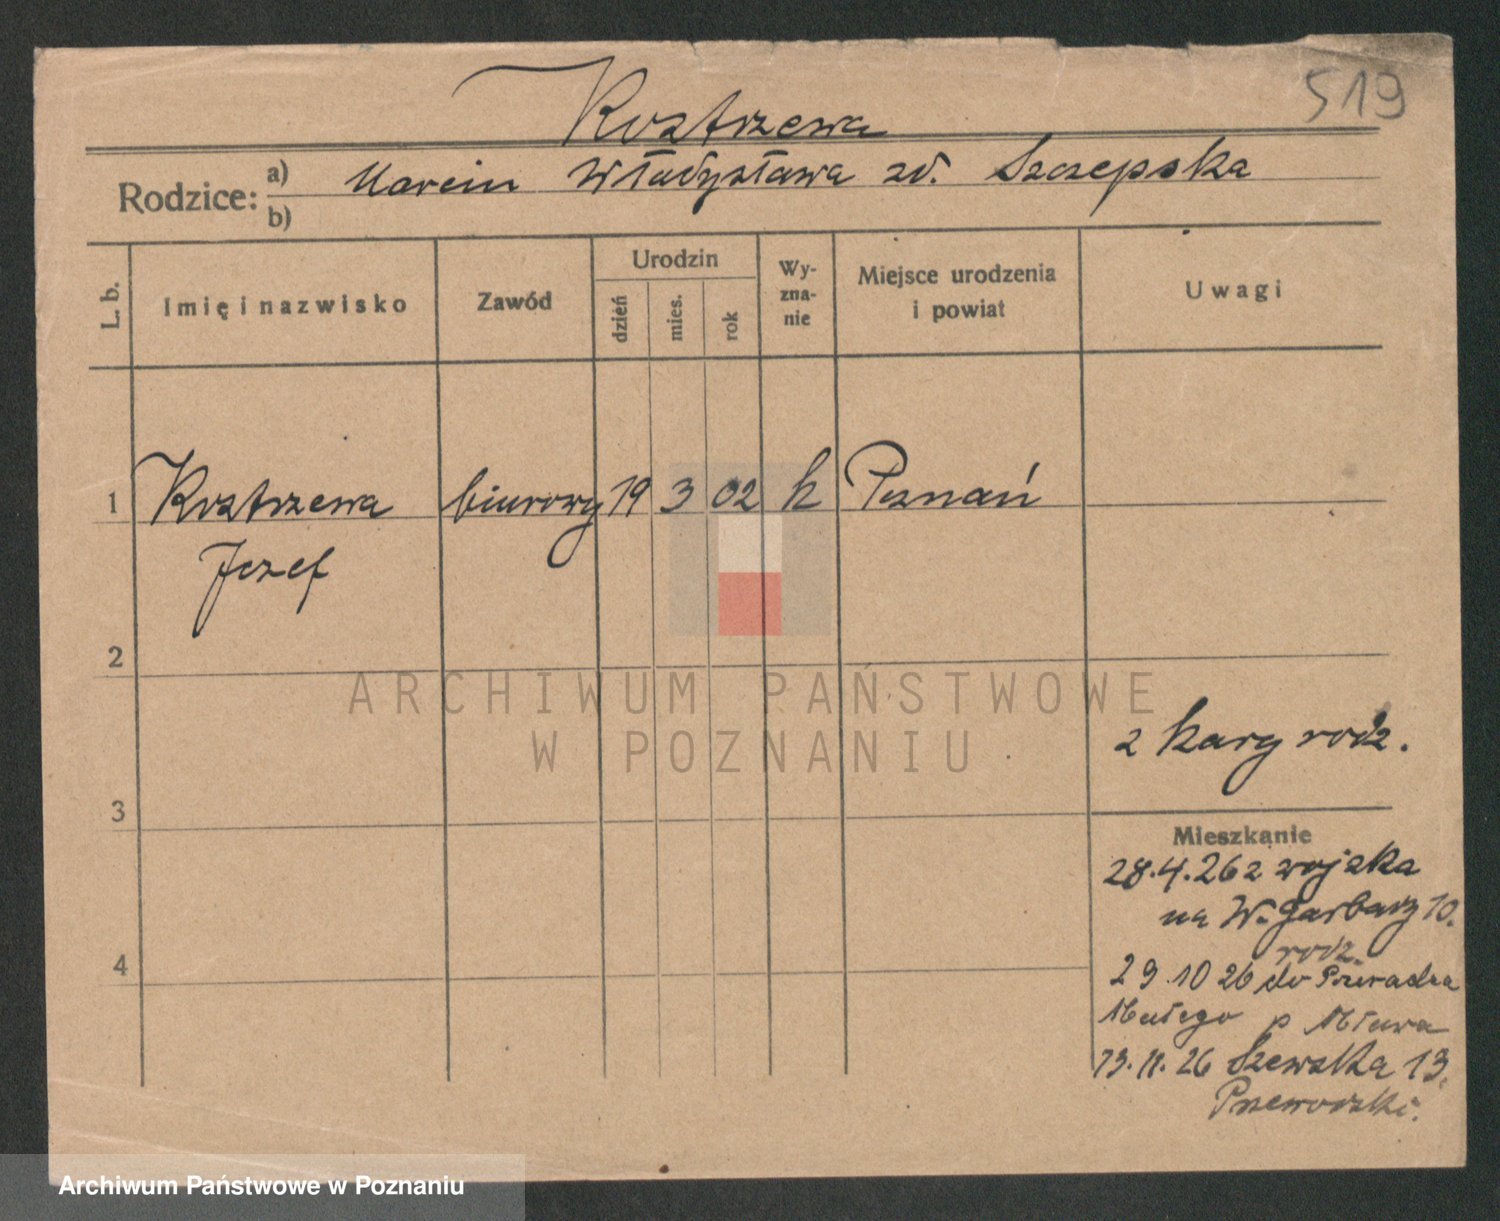 519
Kostrzewa
Rodzice: a) Marcin Władysława zd. Szczepska
b)
L. b. Imię i nazwisko Zawód Urodzin dzień mies. rok Wy-zna-nie Miejsce urodzenia i powiat Uwagi
1 Kostrzewa biurowy 19 3 02 k Poznań
Jozef
2
ARCHIWUM PAŃSTWOWE
W POZNANIU
z kary rodz.
3
Mieszkanie
28.4.26 z wojska
na W. Garbary 10.
rodz.
4
29.10 26 do
Małego p Mława
13.11.26 Szewska 13.
Archiwum Państwowe w Poznaniu